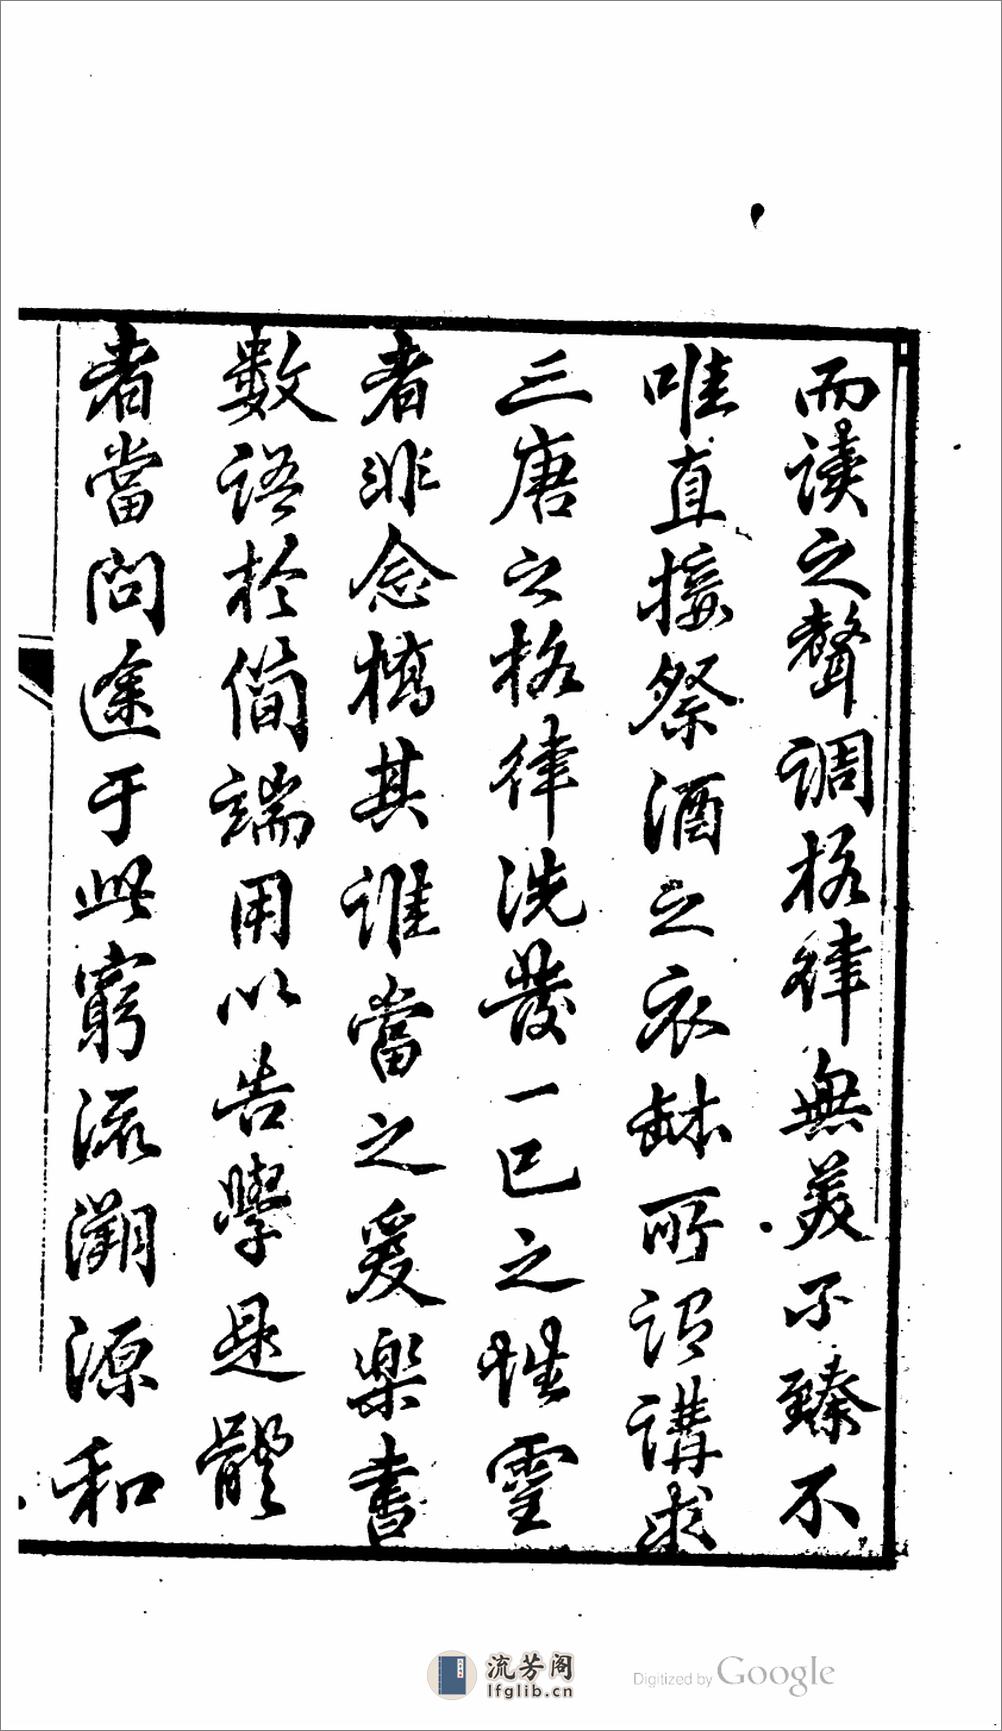 而读之聲調格律無美不臻不
唯直接祭酒之衣缽所謂講求
三唐之格律洗發一己之性靈
者非念樵其誰當之爰樂書
數語於簡端用以告學是體
者當問途于此窮流溯源和
流芳阁
lfglib.cn
Digitized by Google